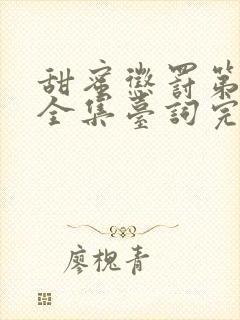 甜蜜懲罰第
全集臺詞完
廖槐青